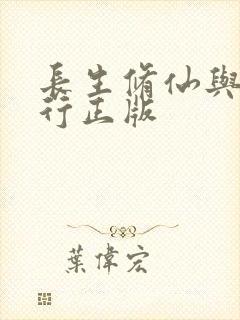 長生脩仙與
行正版
葉偉宏